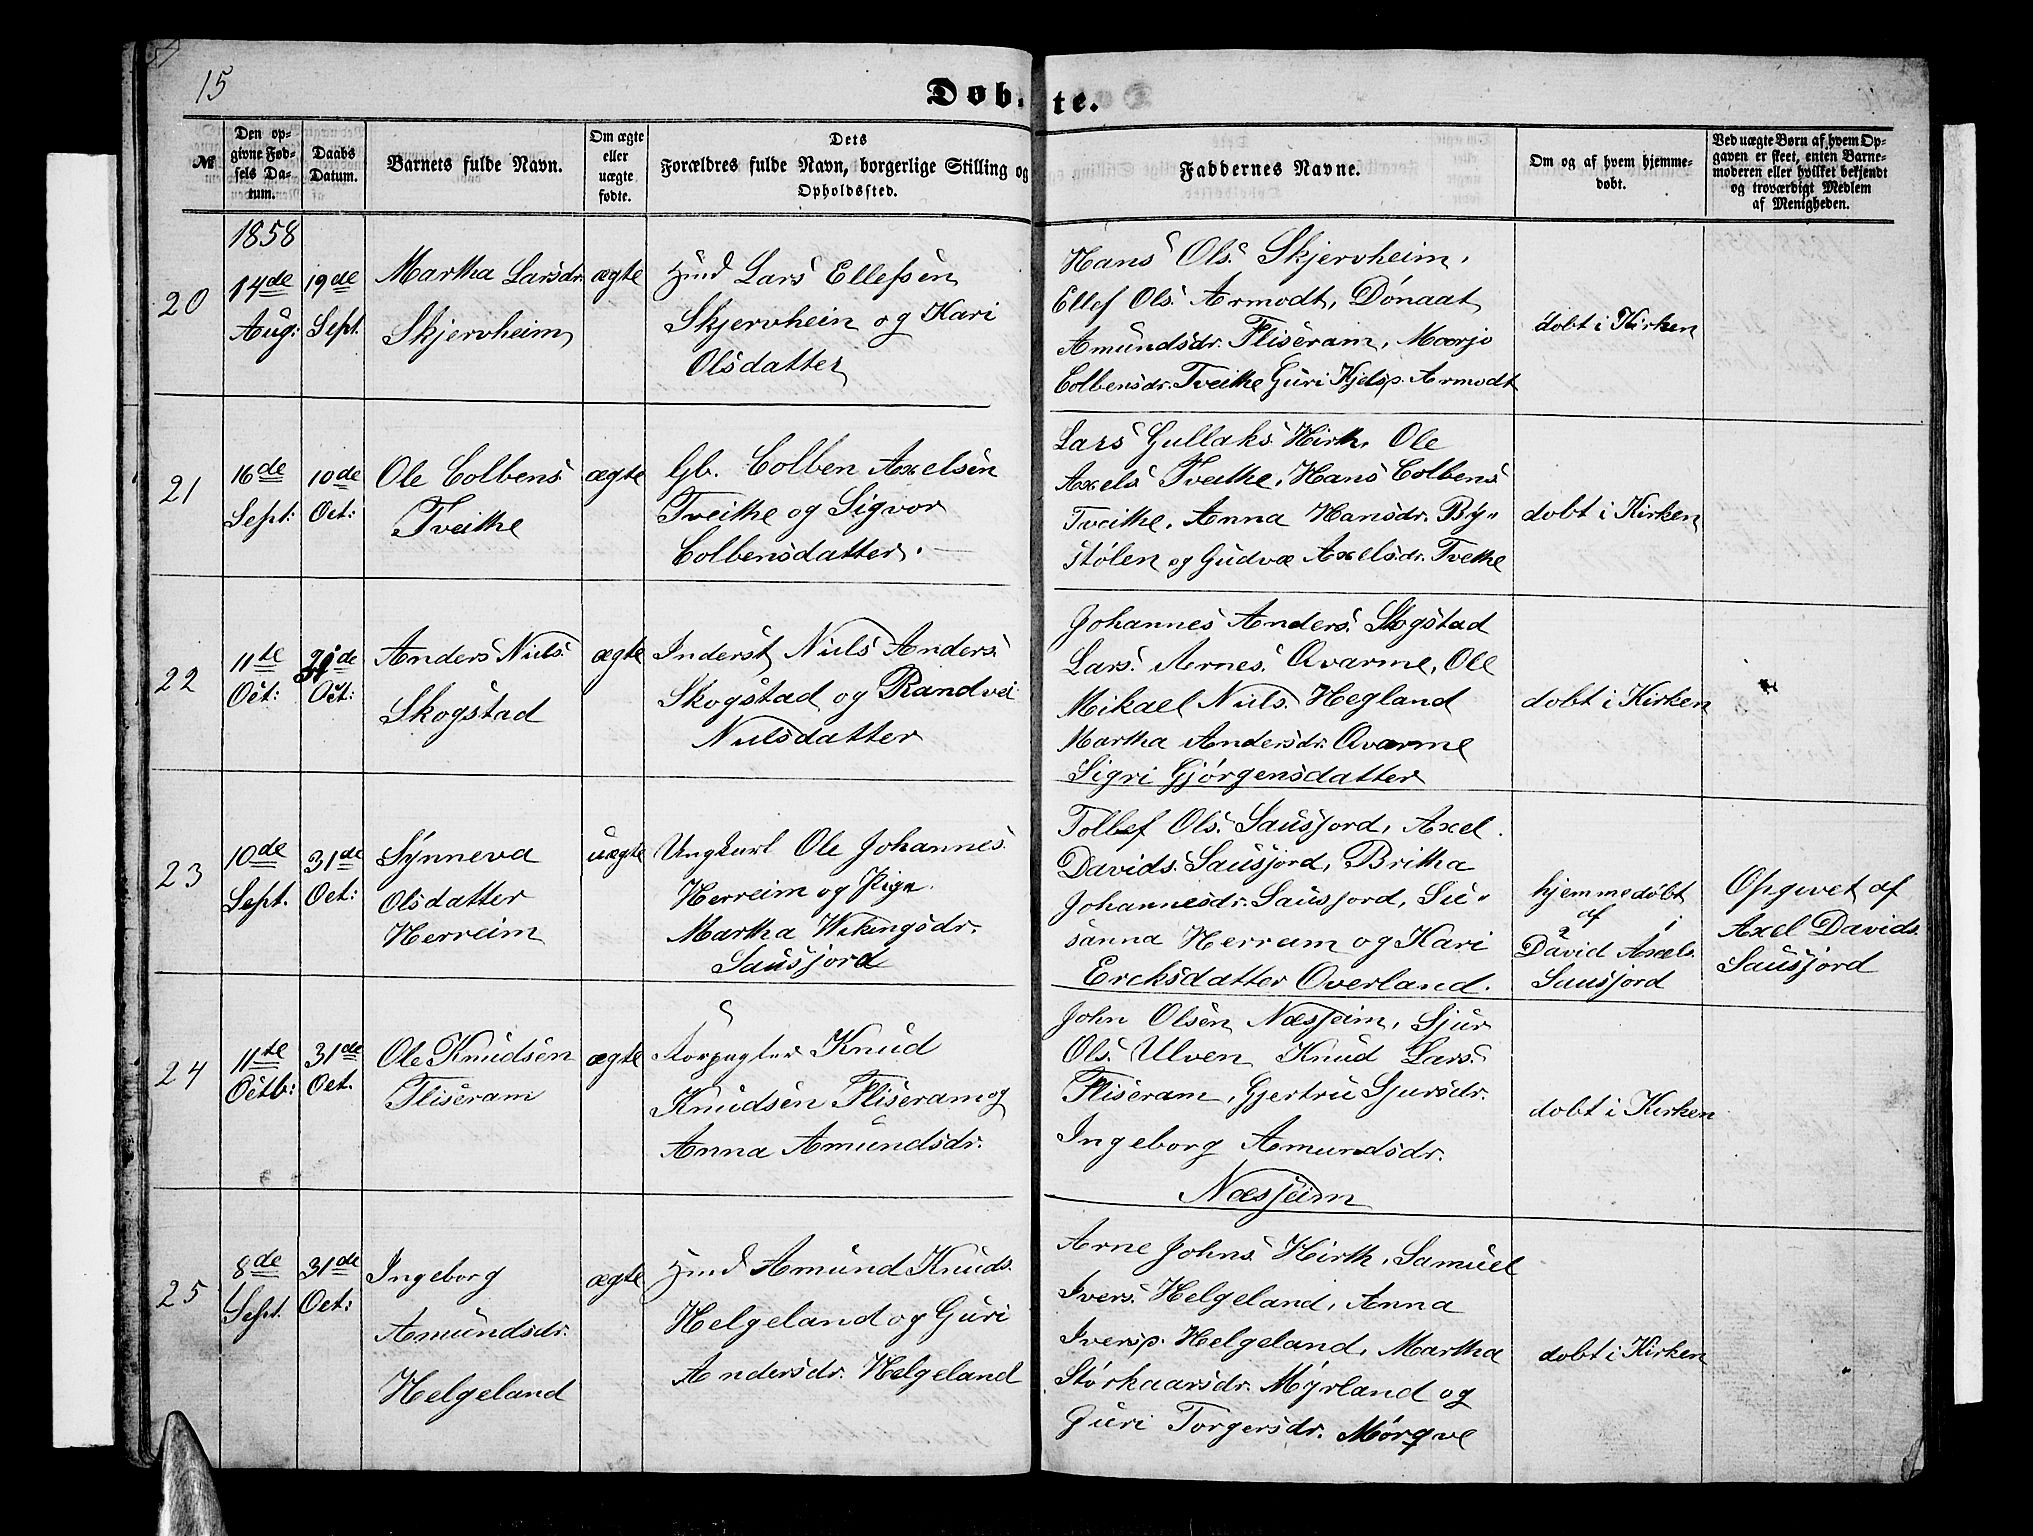 15
Døbte.
№
Den op-
givne Fød-
sels Da-
tum.
Daabs
Datum.
Barnets fulde Navn.
Om ægte
eller
uægte
fødte.
Dets
Forældres fulde Navn, borgerlige Stilling og
Opholdssted.
Faddernes Navne.
Om og af hvem hjemme-
døbt.
Ved uægte Børn af hvem Op-
gaven er skeet, enten Barne-
moderen eller hvilket bekjendt
og troværdigt Medlem
af Menigheden.
1858
20
14de
Aug:
19de
Sept.
Martha Larsdr.
Skjervheim
ægte
Hmd Lars Ellefsen
Skjervhein og Kari
Olsdatter
Hans Ols. Skjervheim,
Ellef Ols. Armodt, Dónaat
Amundsdr. Fliseram, Marjo
Colbensdr. Tveithe Guri Kjelsp. Armodt
døbt i Kirken
21
16de
Sept:
10de
Oct:
Ole Colbens
Tveithe
ægte
Gb. Colben Axelsen
Tveithe og Sigvor
Colbensdatter.
Lars Gullaks Hirth, Ole
Axels Tveithe, Hans Colbens
Tveithe, Anna Hansdr. By-
stølen og Gudvæ Axelsdr. Tvethe
dobt i Kirken
22
11te
Oct:
31de
Oct:
Anders Niels.
Skogstad
ægte
Inderst Niels Anders.
Skogstad og Randvei
Nielsdatter
Johannes Anders. Skogstad
Lars. Arnes. Qvarme, Ole
Mikael Niels. Hegland
Martha Andersdr. Qvarme
Sigri Gjørgensdatter
dobt i Kirken
23
10de
Sept.
31de
Oct:
Synneva
Olsdatter
Herreim
uægte
Ungkarl Ole Johannes.
Herreim og Pige
Martha Wikingsdr.
Sausjord
Tollef Ols. Sausjord, Axel
Davids. Sausjord, Britha
Johannesdr. Sausjord, Su-
sanna Herram og Kari
Ercksdatter Overland.
hjemmedøbt
af
David Axels.
Sausjord
Opgivet af
Axel Davids
Sausjord
24
11te
Octb:
31de
Oct.
Ole Knudsen
Fliseram
ægte
Forpagter Knud
Knudsen Fliseram og
Anna Amundsdr.
John Olsen Næsheim, Sjur
Ols. Ulven Knud Lars.
Fliseram, Gjertru Sjursdr.
Ingeborg Amundsdr.
Næsheim
dobt i Kirken
25
8de
Sept.
31de
Oct:
Ingeborg
Amundsdr.
Helgeland
ægte
Hmd Amund Knuds.
Helgeland og Guri
Andersdr. Helgeland
Arne Johns. Hirth, Samuel
Ivers. Helgeland, Anna
Iversp. Helgeland, Martha
Stórkaarsdr. Myrland og
Guri Torgersdr. Mórqve
dobt i Kirken